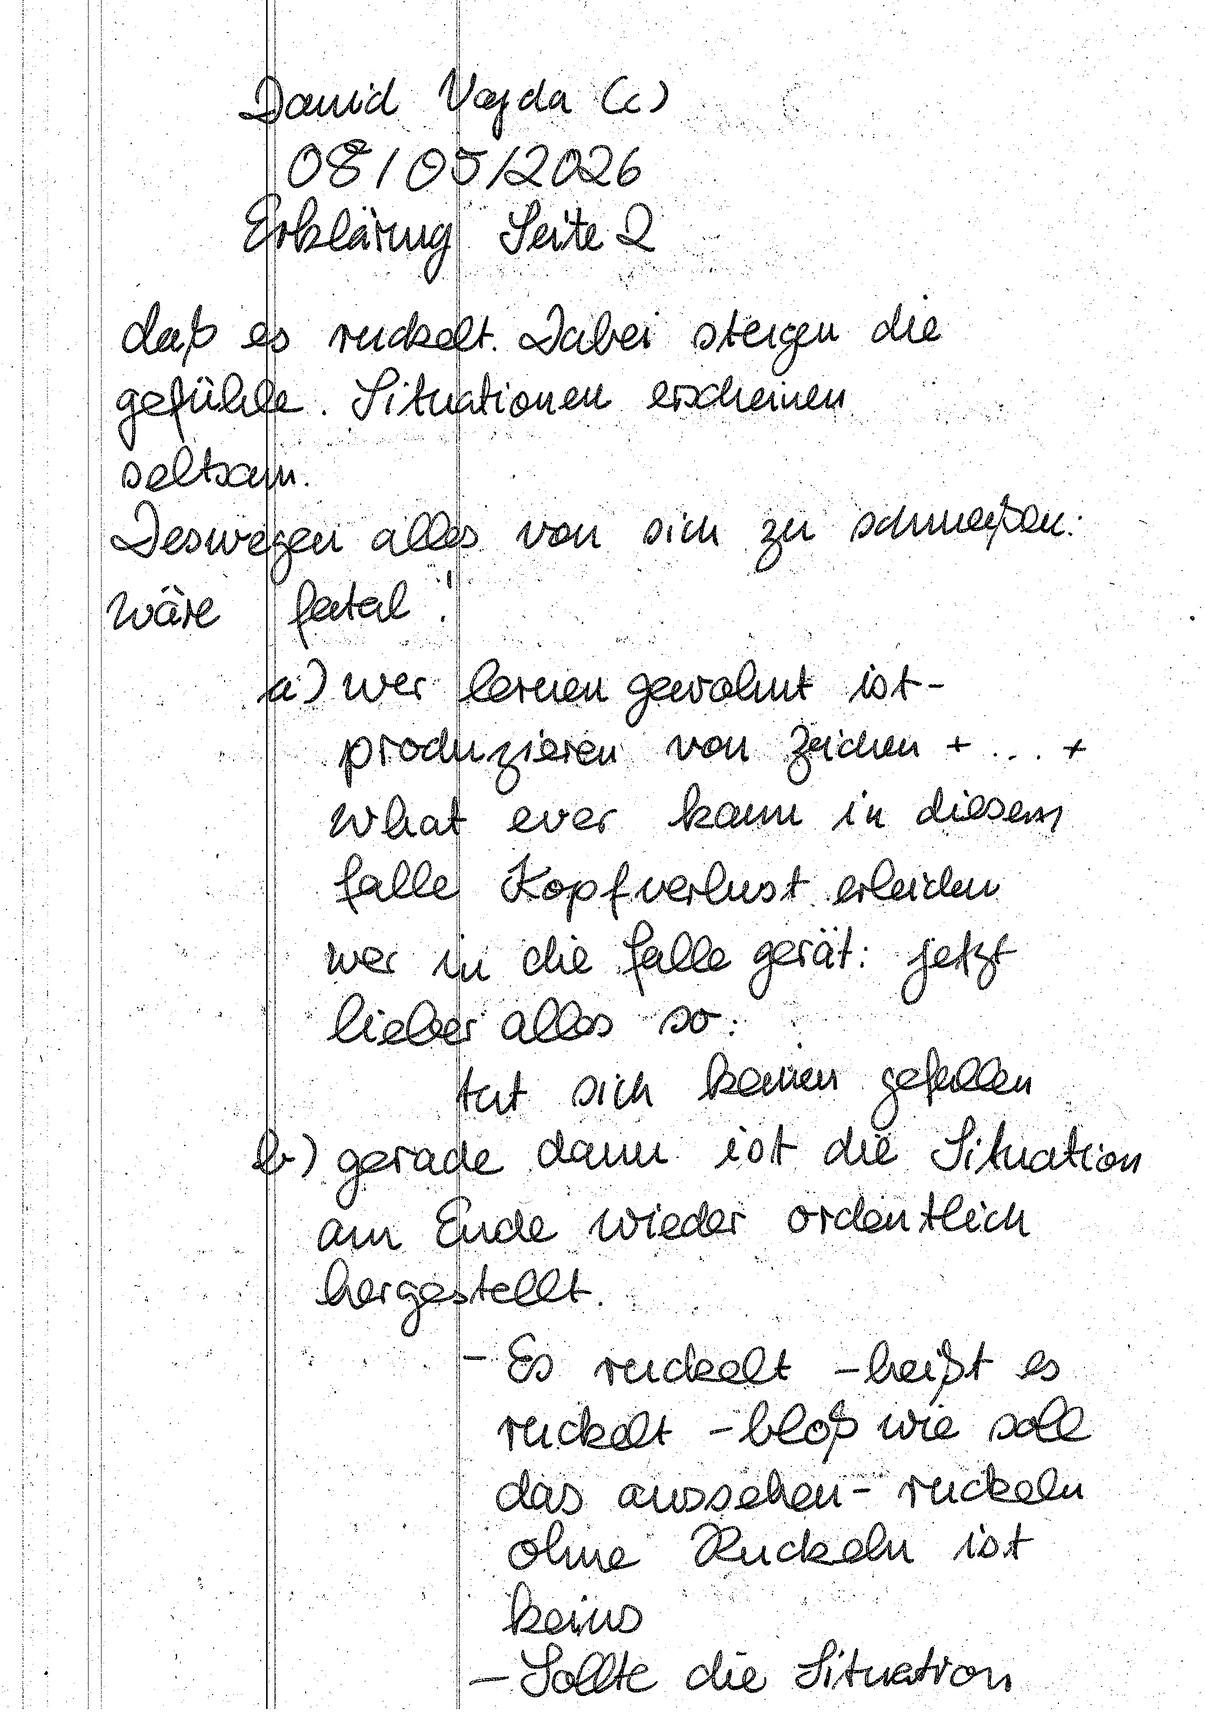 David Vajda (c)
08/05/2026
Erklärung Seite 2
daß es ruckelt. Dabei steigen die
gefühle. Situationen erscheinen
seltsam.
Deswegen alles von sich zu schmeißen:
wäre fatal!
a) wer lernen gewohnt ist-
produzieren von Zeichen + ... +
what ever kann in diesem
falle Kopfverlust erleiden
wer in die falle gerät: jetzt
lieber alles so:
tut sich keinen gefallen
b) gerade dann ist die Situation
am Ende wieder ordentlich
hergestellt.
- Es ruckelt - heißt es
ruckelt - bloß wie soll
das aussehen - ruckeln
ohne Ruckeln ist
keins
- Sollte die Situation